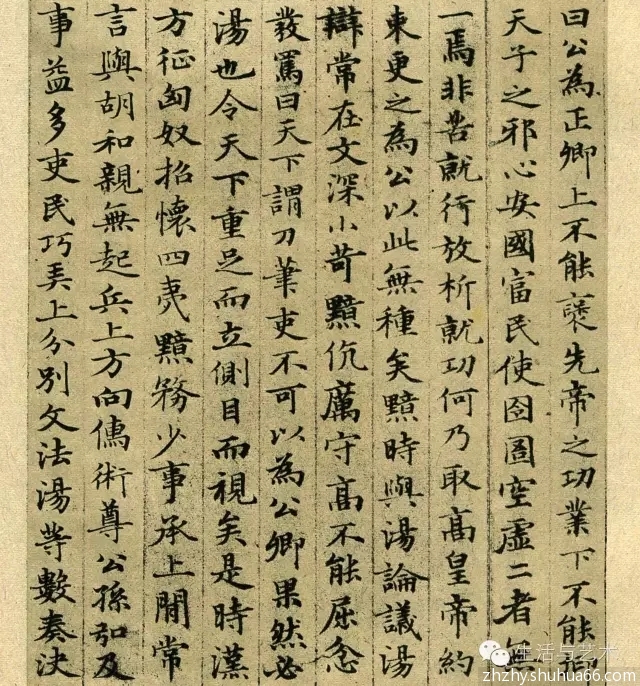 曰公為正卿上不能襃先帝之功業下不能抑
天子之邪心安國富民使囹圄空虛二者無
一焉非苦就行放析就功何乃取髙皇帝約
束更之為公以此無種矣黯時與湯論議湯
辯常在文深小苛黯伉厲守髙不能屈忿
發罵曰天下謂刀筆吏不可以為公卿果然必
湯也令天下重足而立側目而視矣是時漢
方征匈奴招懷四夷黯務少事承上閒常
言與胡和親無起兵上方向儒術尊公孫弘及
事益多吏民巧弄上分別文法湯等數奏決
生活与艺术
zhzhy.shuhua66.com